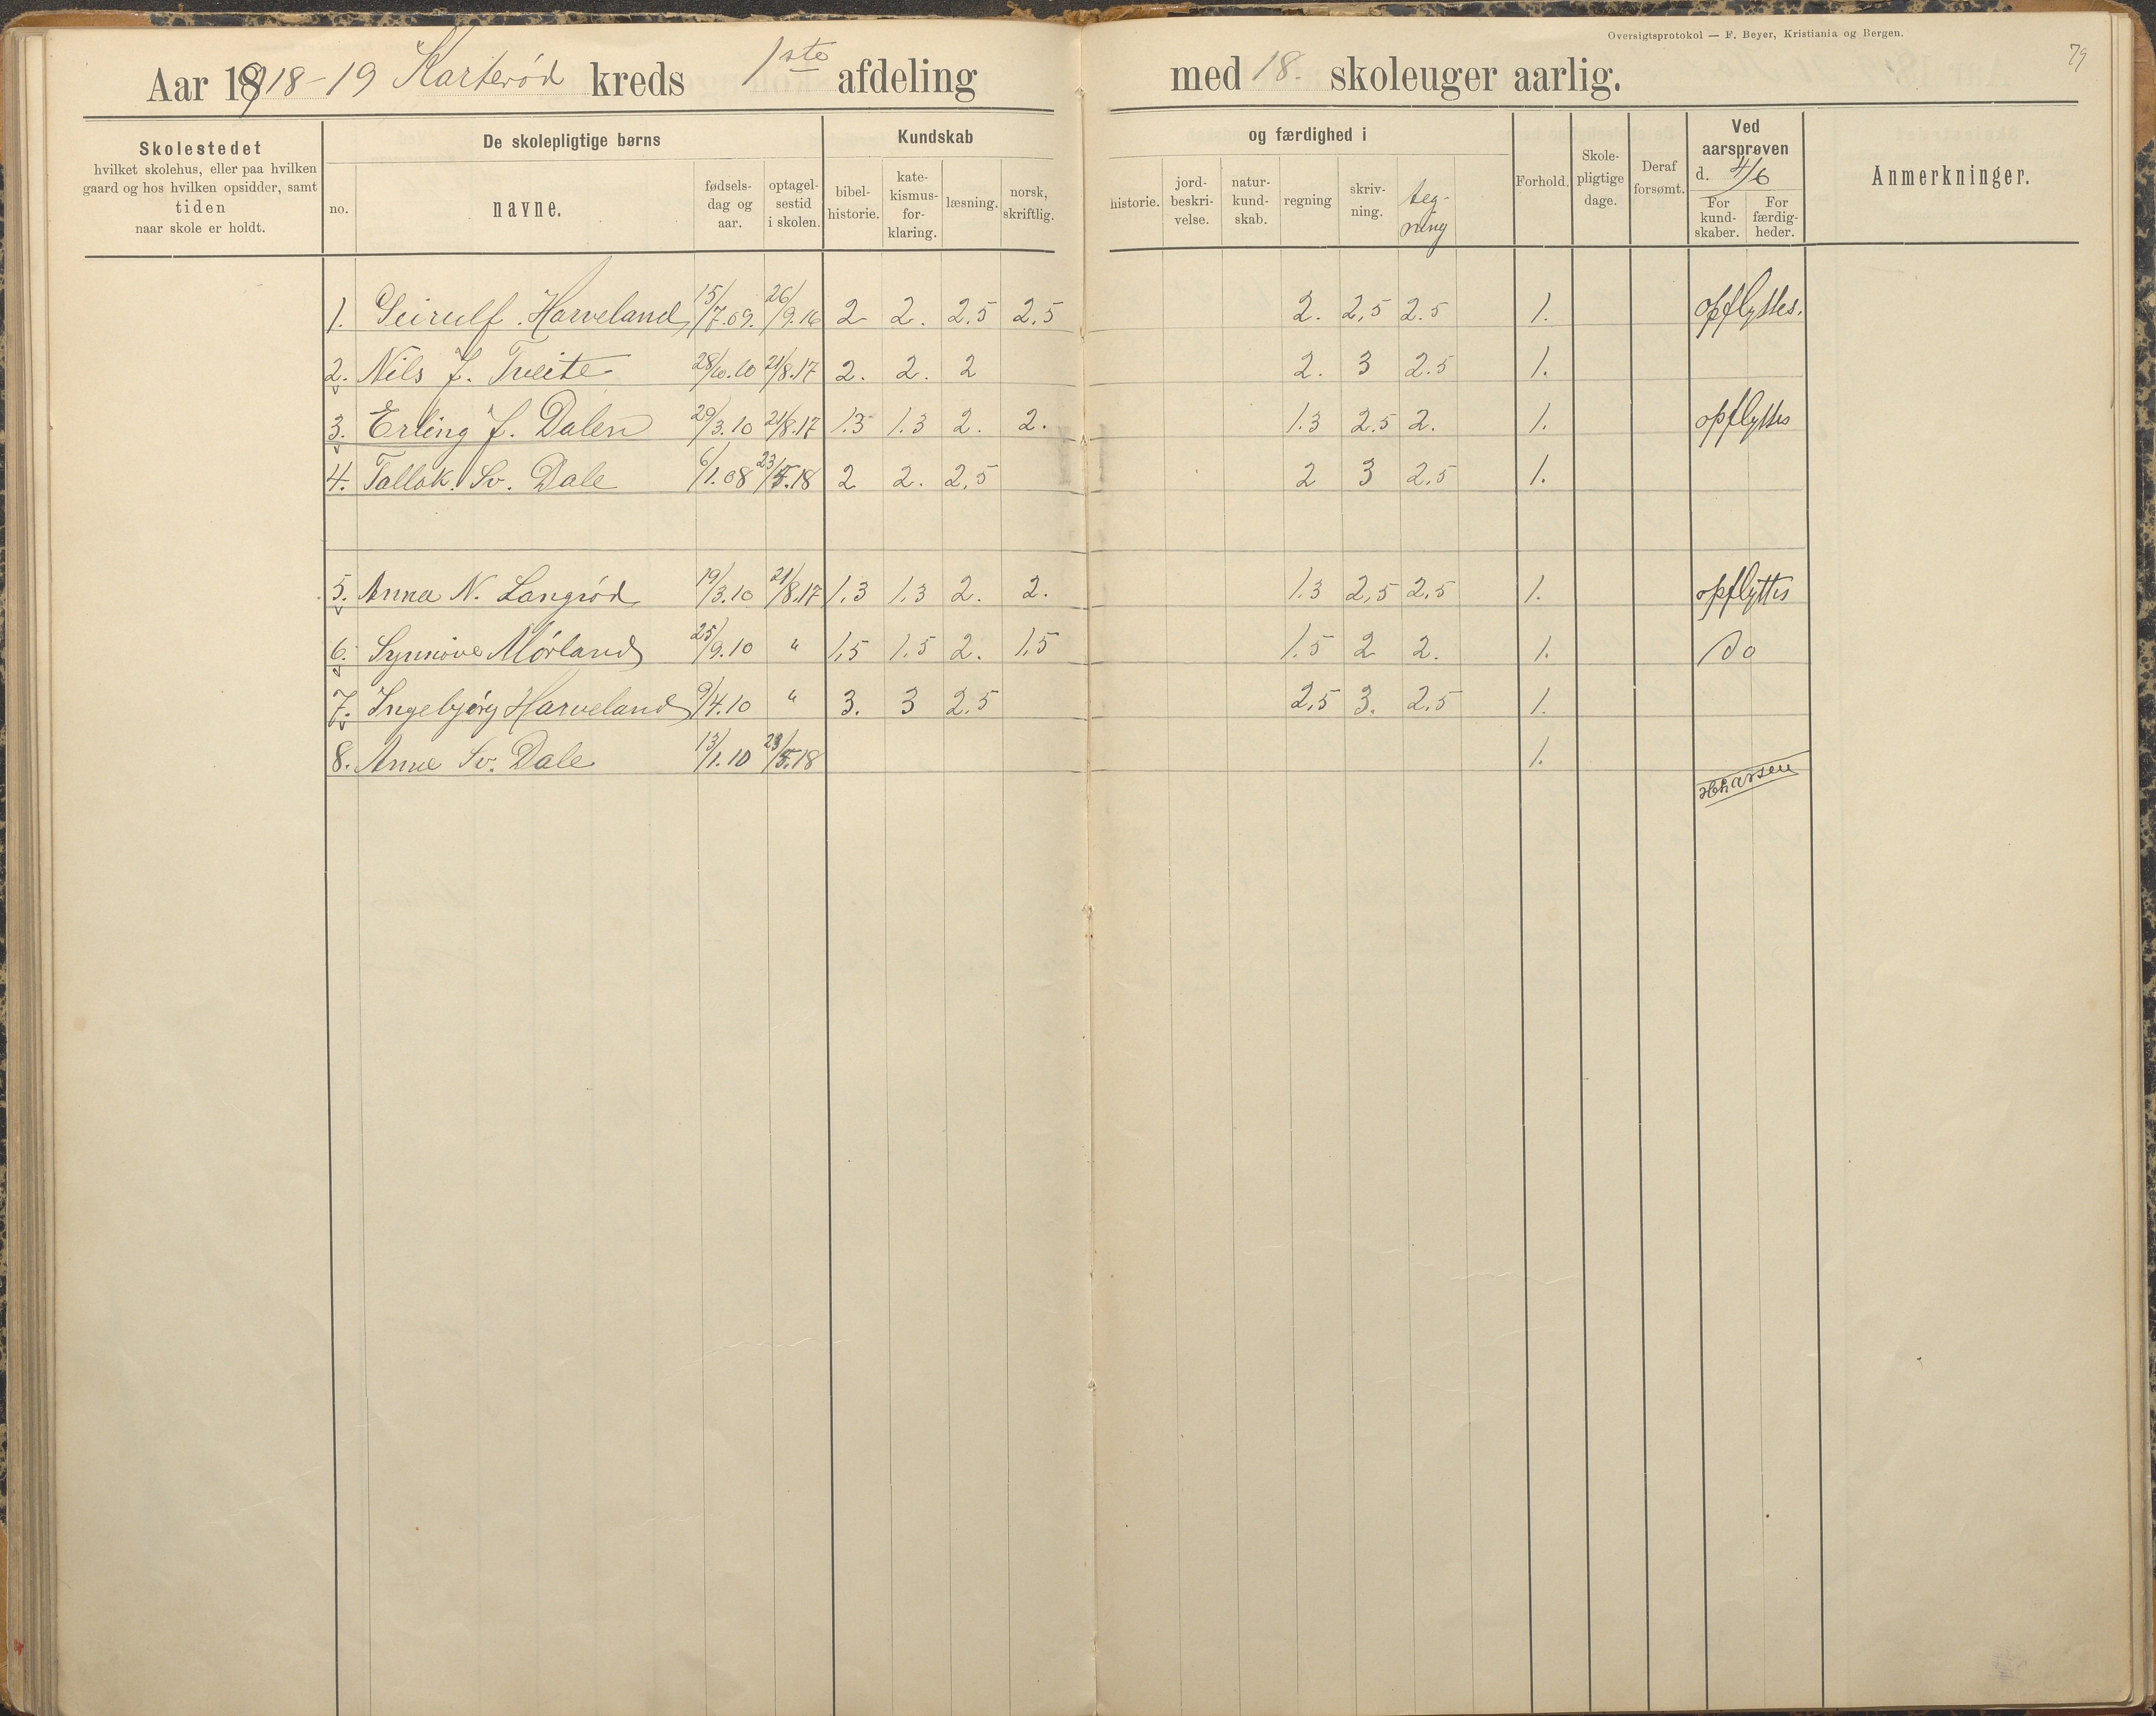 Oversigtsprotokol — F. Beyer, Kristiania og Bergen.
79
Aar 1918-19 Karterød kreds 1ste afdeling med 18. skoleuger aarlig.
Skolestedet
hvilket skolehus, eller paa hvilken
gaard og hos hvilken opsidder, samt
tiden
naar skole er holdt.
De skolepligtige børns
no.
navne.
fødsels-
dag og
aar.
optagel-
sestid
i skolen.
Kundskab
bibel-
historie.
kate-
kismus-
for-
klaring.
læsning.
norsk,
skriftlig.
og færdighed i
historie.
jord-
beskri-
velse.
natur-
kund-
skab.
regning
skriv-
ning.
teg-
ning
Forhold.
Skole-
pligtige
dage.
Deraf
forsømt.
Ved
aarsprøven
d. 4/6
For
kund-
skaber.
For
færdig-
heder.
Anmerkninger.
1. Geirulf. Harveland 15/7.09. 26/9.16 2 2. 2.5 2,5 2. 2,5 2.5 1. opflyttes.
2. Nils J. Tveite 28/10.10 21/8.17 2. 2. 2 2. 3 2.5 1.
3. Erling J. Dalen 29/3.10 21/8.17 1.3 1.3 2. 2. 1.3 2.5 2. 1. opflyttes
4. Tallak. Sv. Dale 6/1.08 23/5.18 2 2. 2,5 2 3 2,5 1.
5. Anna N. Langrød 19/3.10 21/8.17 1.3 1.3 2. 2. 1.3 2,5 2,5 1. opflyttes
6. Synnøve Mørland 25/9.10 " 1,5 1.5 2. 1.5 1.5 2 2. 1. Do
7. Ingebjørg Harveland 9/4.10 " 3. 3 2.5 2,5 3. 2,5 1.
8. Anne Sv. Dale 13/1.10 23/5.18 1.